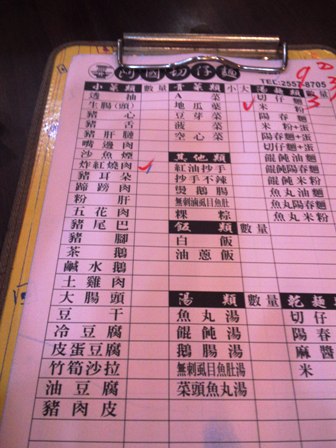 阿國切仔麵
TEL:2557-8705
小菜類 數量
透抽
生腸(頭)
豬心
豬舌
豬肝腱
嘴邊肉
沙魚煙
炸紅燒肉
豬耳朵
蹄膀肉
粉肝
五花肉
豬尾巴
豬腳
茶鵝
鹹水鵝
土雞肉
大腸頭
豆干
冷豆腐
皮蛋豆腐
竹筍沙拉
油豆腐
豬肉皮
青菜類 小 大
A菜
地瓜葉
豆芽菜
菠菜
空心菜
其他類
紅油抄手
抄手不辣
燙鵝腸
無刺虱目魚肚
粿粽
飯類 數量
白飯
油蔥飯
湯類 數量
魚丸湯
餛飩湯
鵝腸湯
無刺虱目魚肚湯
菜頭魚丸湯
湯麵類 數量
切仔麵
米粉
陽春麵
米粉+蛋
陽春麵+蛋
切仔麵+蛋
餛飩油麵
餛飩陽春
餛飩米粉
魚丸油麵
魚丸陽春
魚丸米粉
乾麵
切仔
陽春
麻醬
米